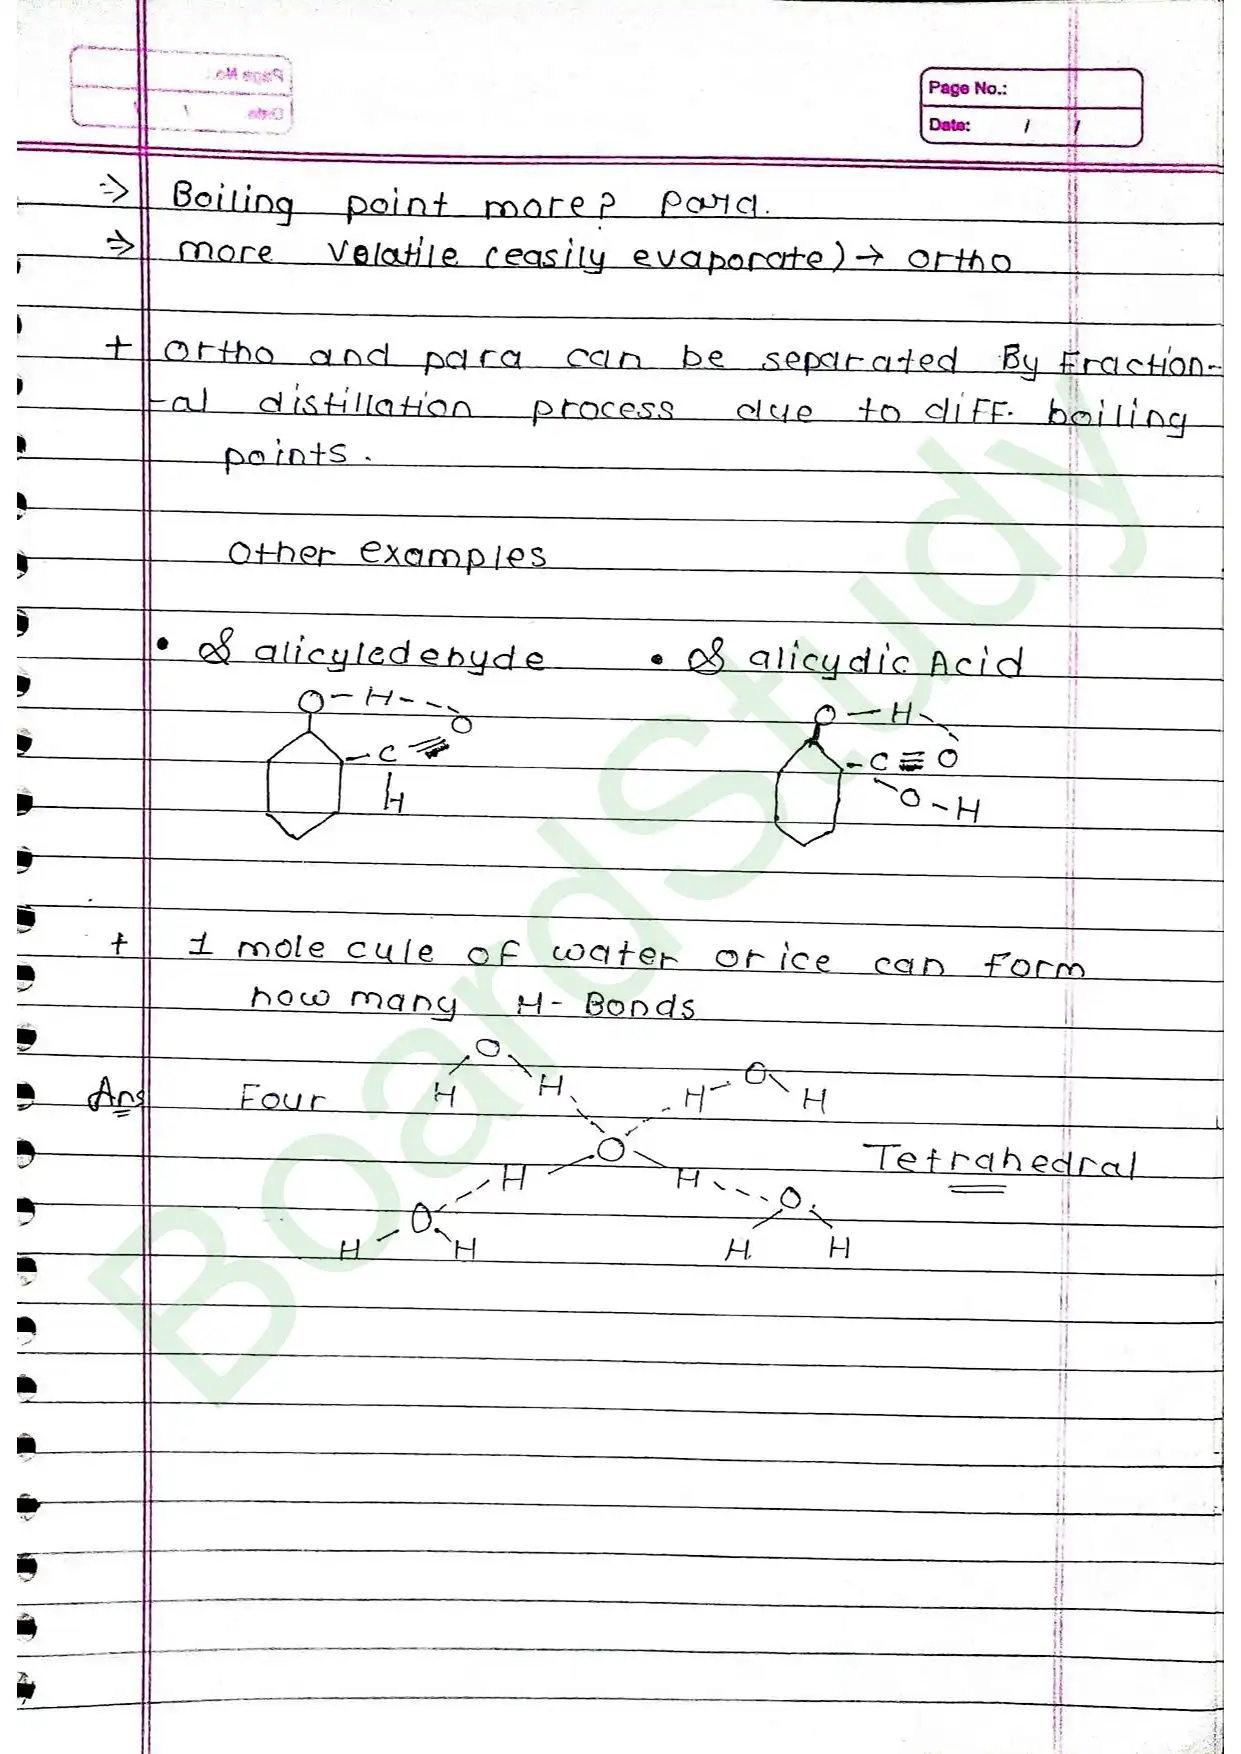 Page No.:
Date: / /
⇒ Boiling point more? para.
⇒ more Volatile (easily evaporate) → ortho
+ ortho and para can be separated By Fraction-
-al distillation process due to diff. boiling
points.
Other examples
• Salicyledehyde • Salicydic Acid
O - H --- O
C
H
O - H
C ≡ O
O - H
+ 1 mole cule of water or ice can form
how many H - Bonds
Ans Four
O
H H
O
H H
O
H H
Tetrahedral
O
H H
O
H H
BoardStudy